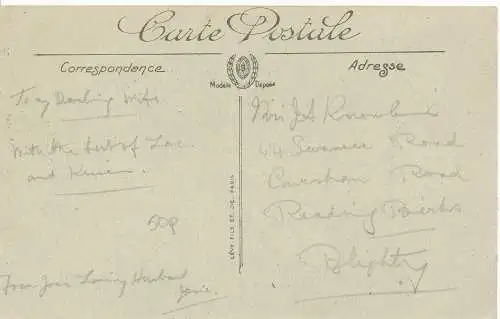 Carte Postale
Correspondence
Adresse
Modèle Déposé
To my Darling Wife
With the best of Love
and Kisses.
50p
From Your Loving Husband
LÉVY FILS ET CIE, PARIS
Mrs
44 Road
Caversham Road
Reading Berks
Blighty